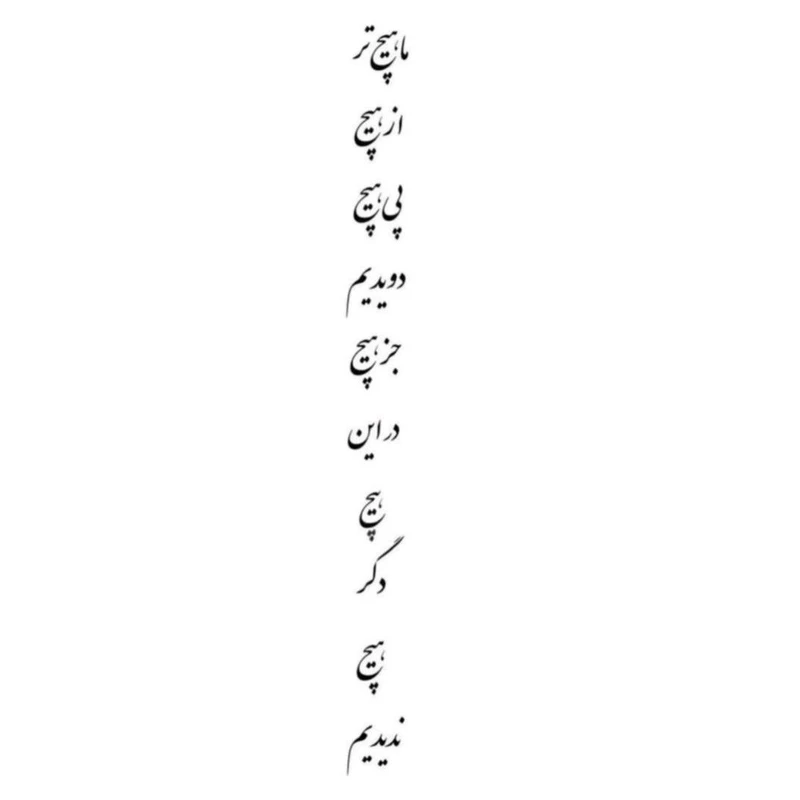 ما هیچ تر
از هیچ
پی هیچ
دویدیم
جز هیچ
در این
هیچ
دگر
هیچ
ندیدیم